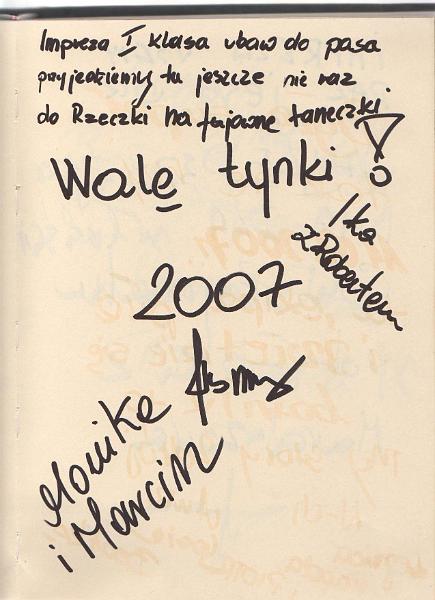 Impreza I klasa ubaw do pasa
przyjedziemy tu jeszcze nie raz
do Rzeczki na fajowne taneczki!
Walę tynki!
Ika
z Robertem
2007
Monika
i Marcin